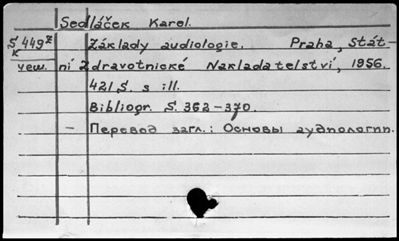 Sedláček Karel.
Š 449 z Základy audiologie. Praha, Stát-
к
чеш. ní Zdravotnické Nakladatelství, 1956.
421 S. s ill.
Bibliogr. S. 362-370.
— Перевод загл.: Основы аудиологии.